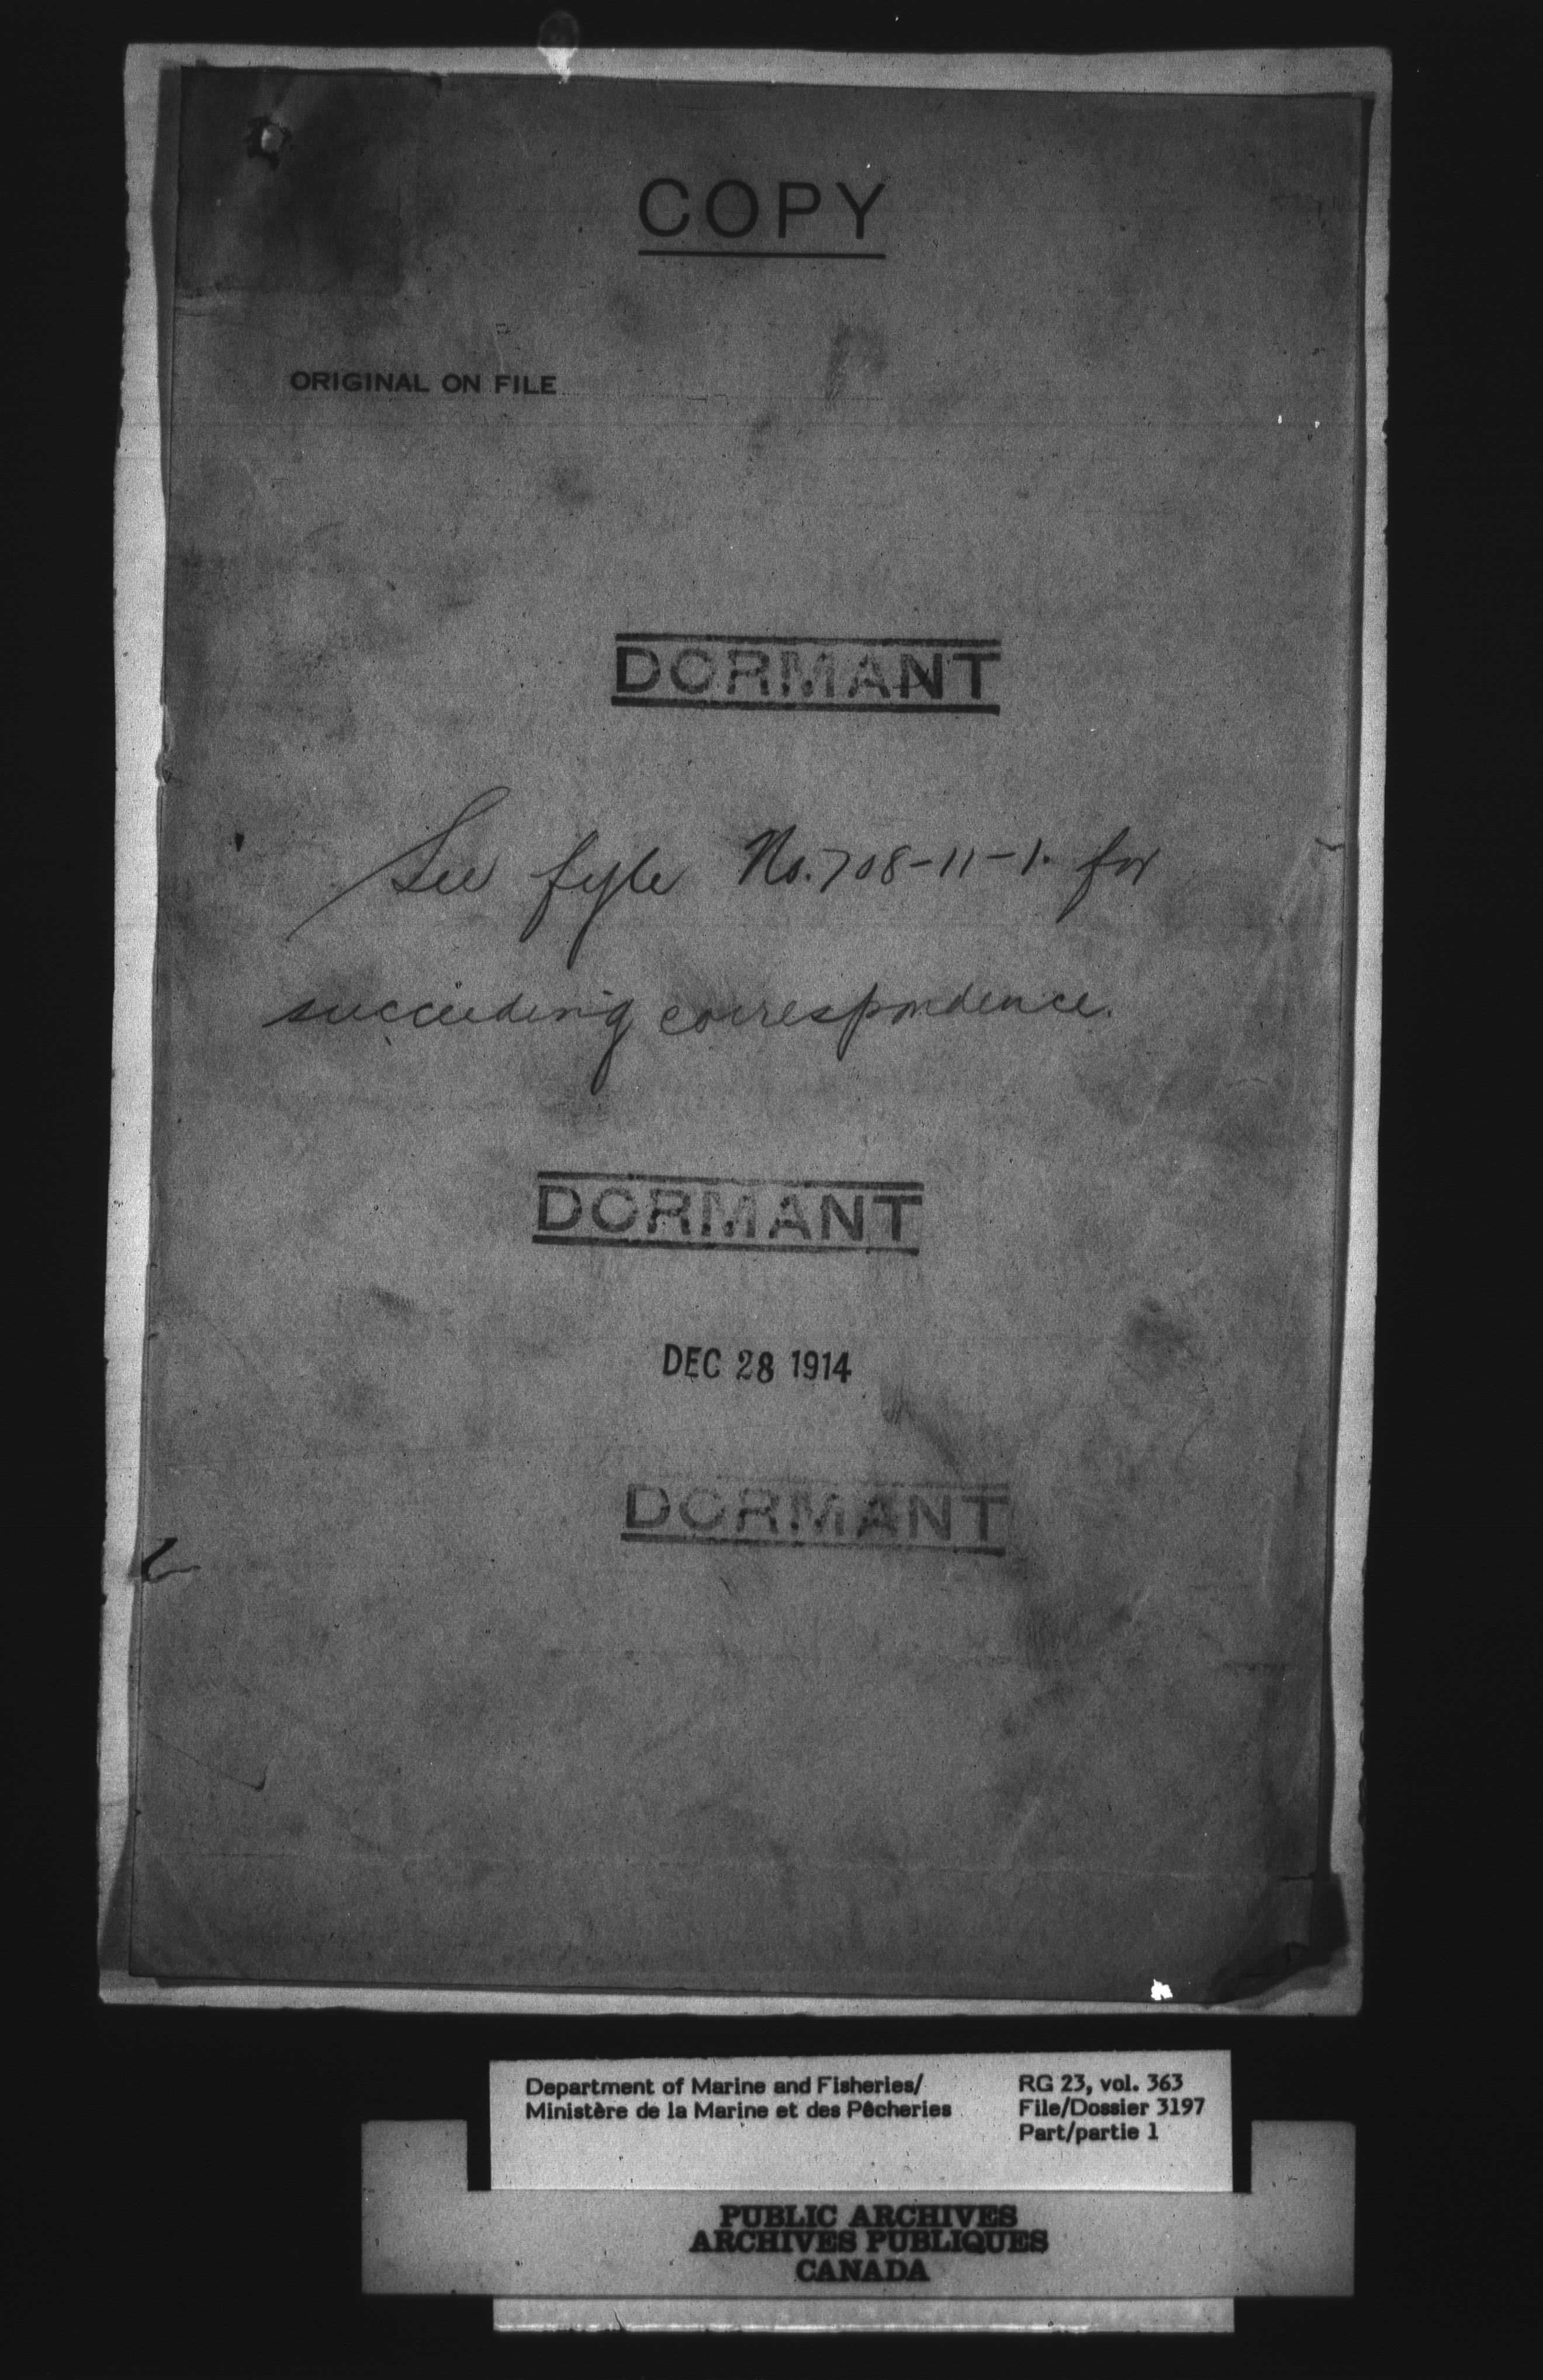 COPY
ORIGINAL ON FILE
DORMANT
See fyle No. 708-11-1. for
succeeding correspondence.
DORMANT
DEC 28 1914
DORMANT
Department of Marine and Fisheries/
Ministère de la Marine et des Pêcheries
RG 23, vol. 363
File/Dossier 3197
Part/partie 1
PUBLIC ARCHIVES
ARCHIVES PUBLIQUES
CANADA